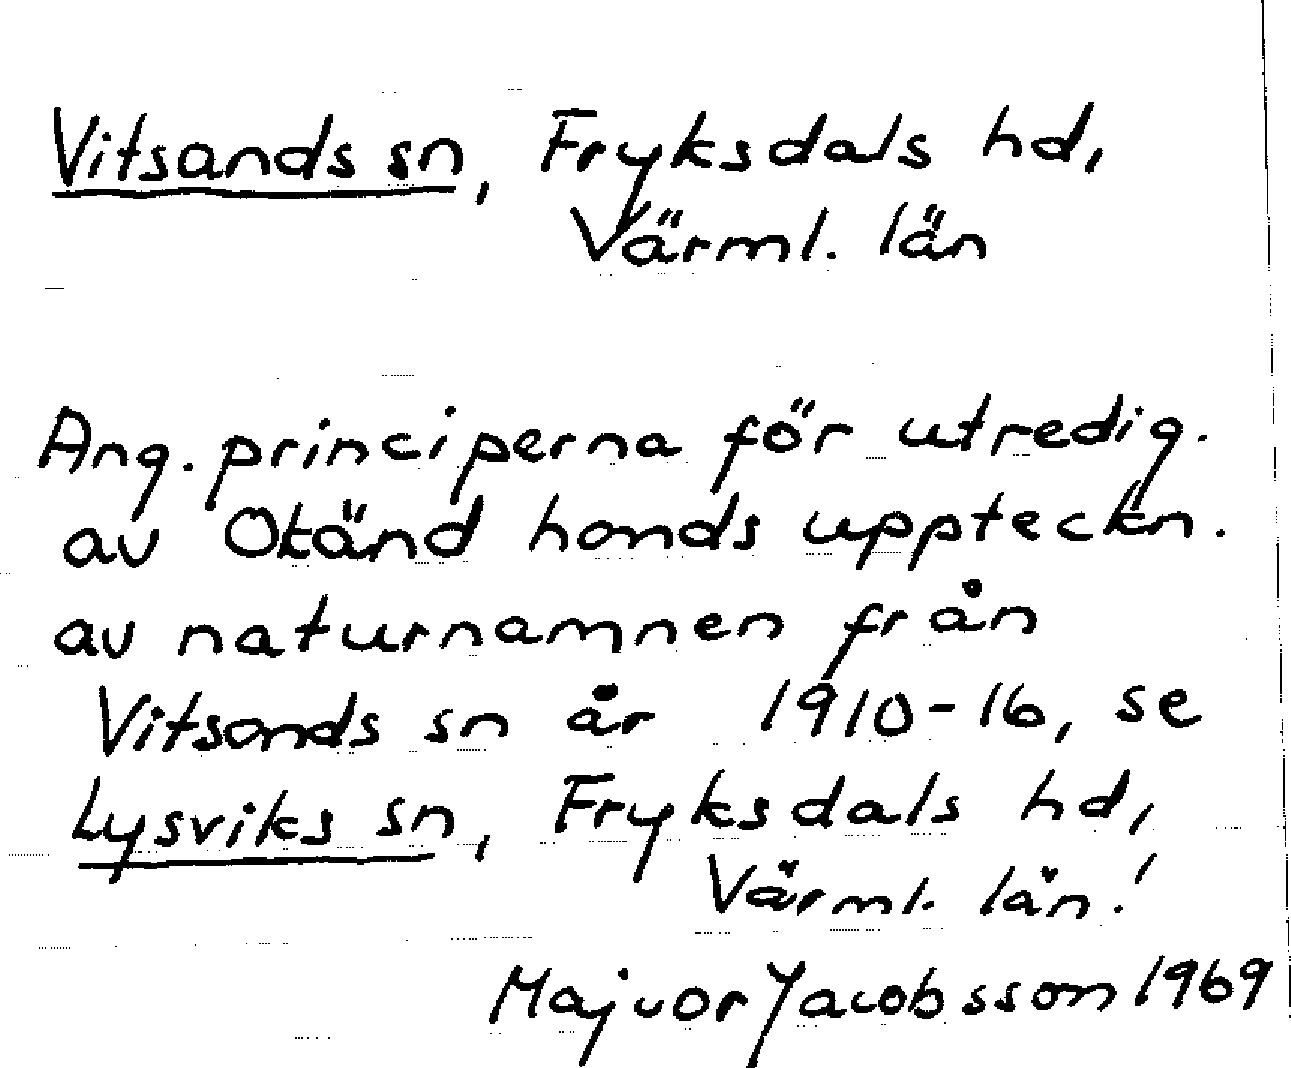 Vitsands sn, Fryksdals hd,
Värml. län
Ang. principerna för utredig.
av Okänd hands uppteckn.
av naturnamnen från
Vitsands sn år 1910-16, se
Lysviks sn, Fryksdals hd,
Värml. län!
Majvor Jacobsson 1969